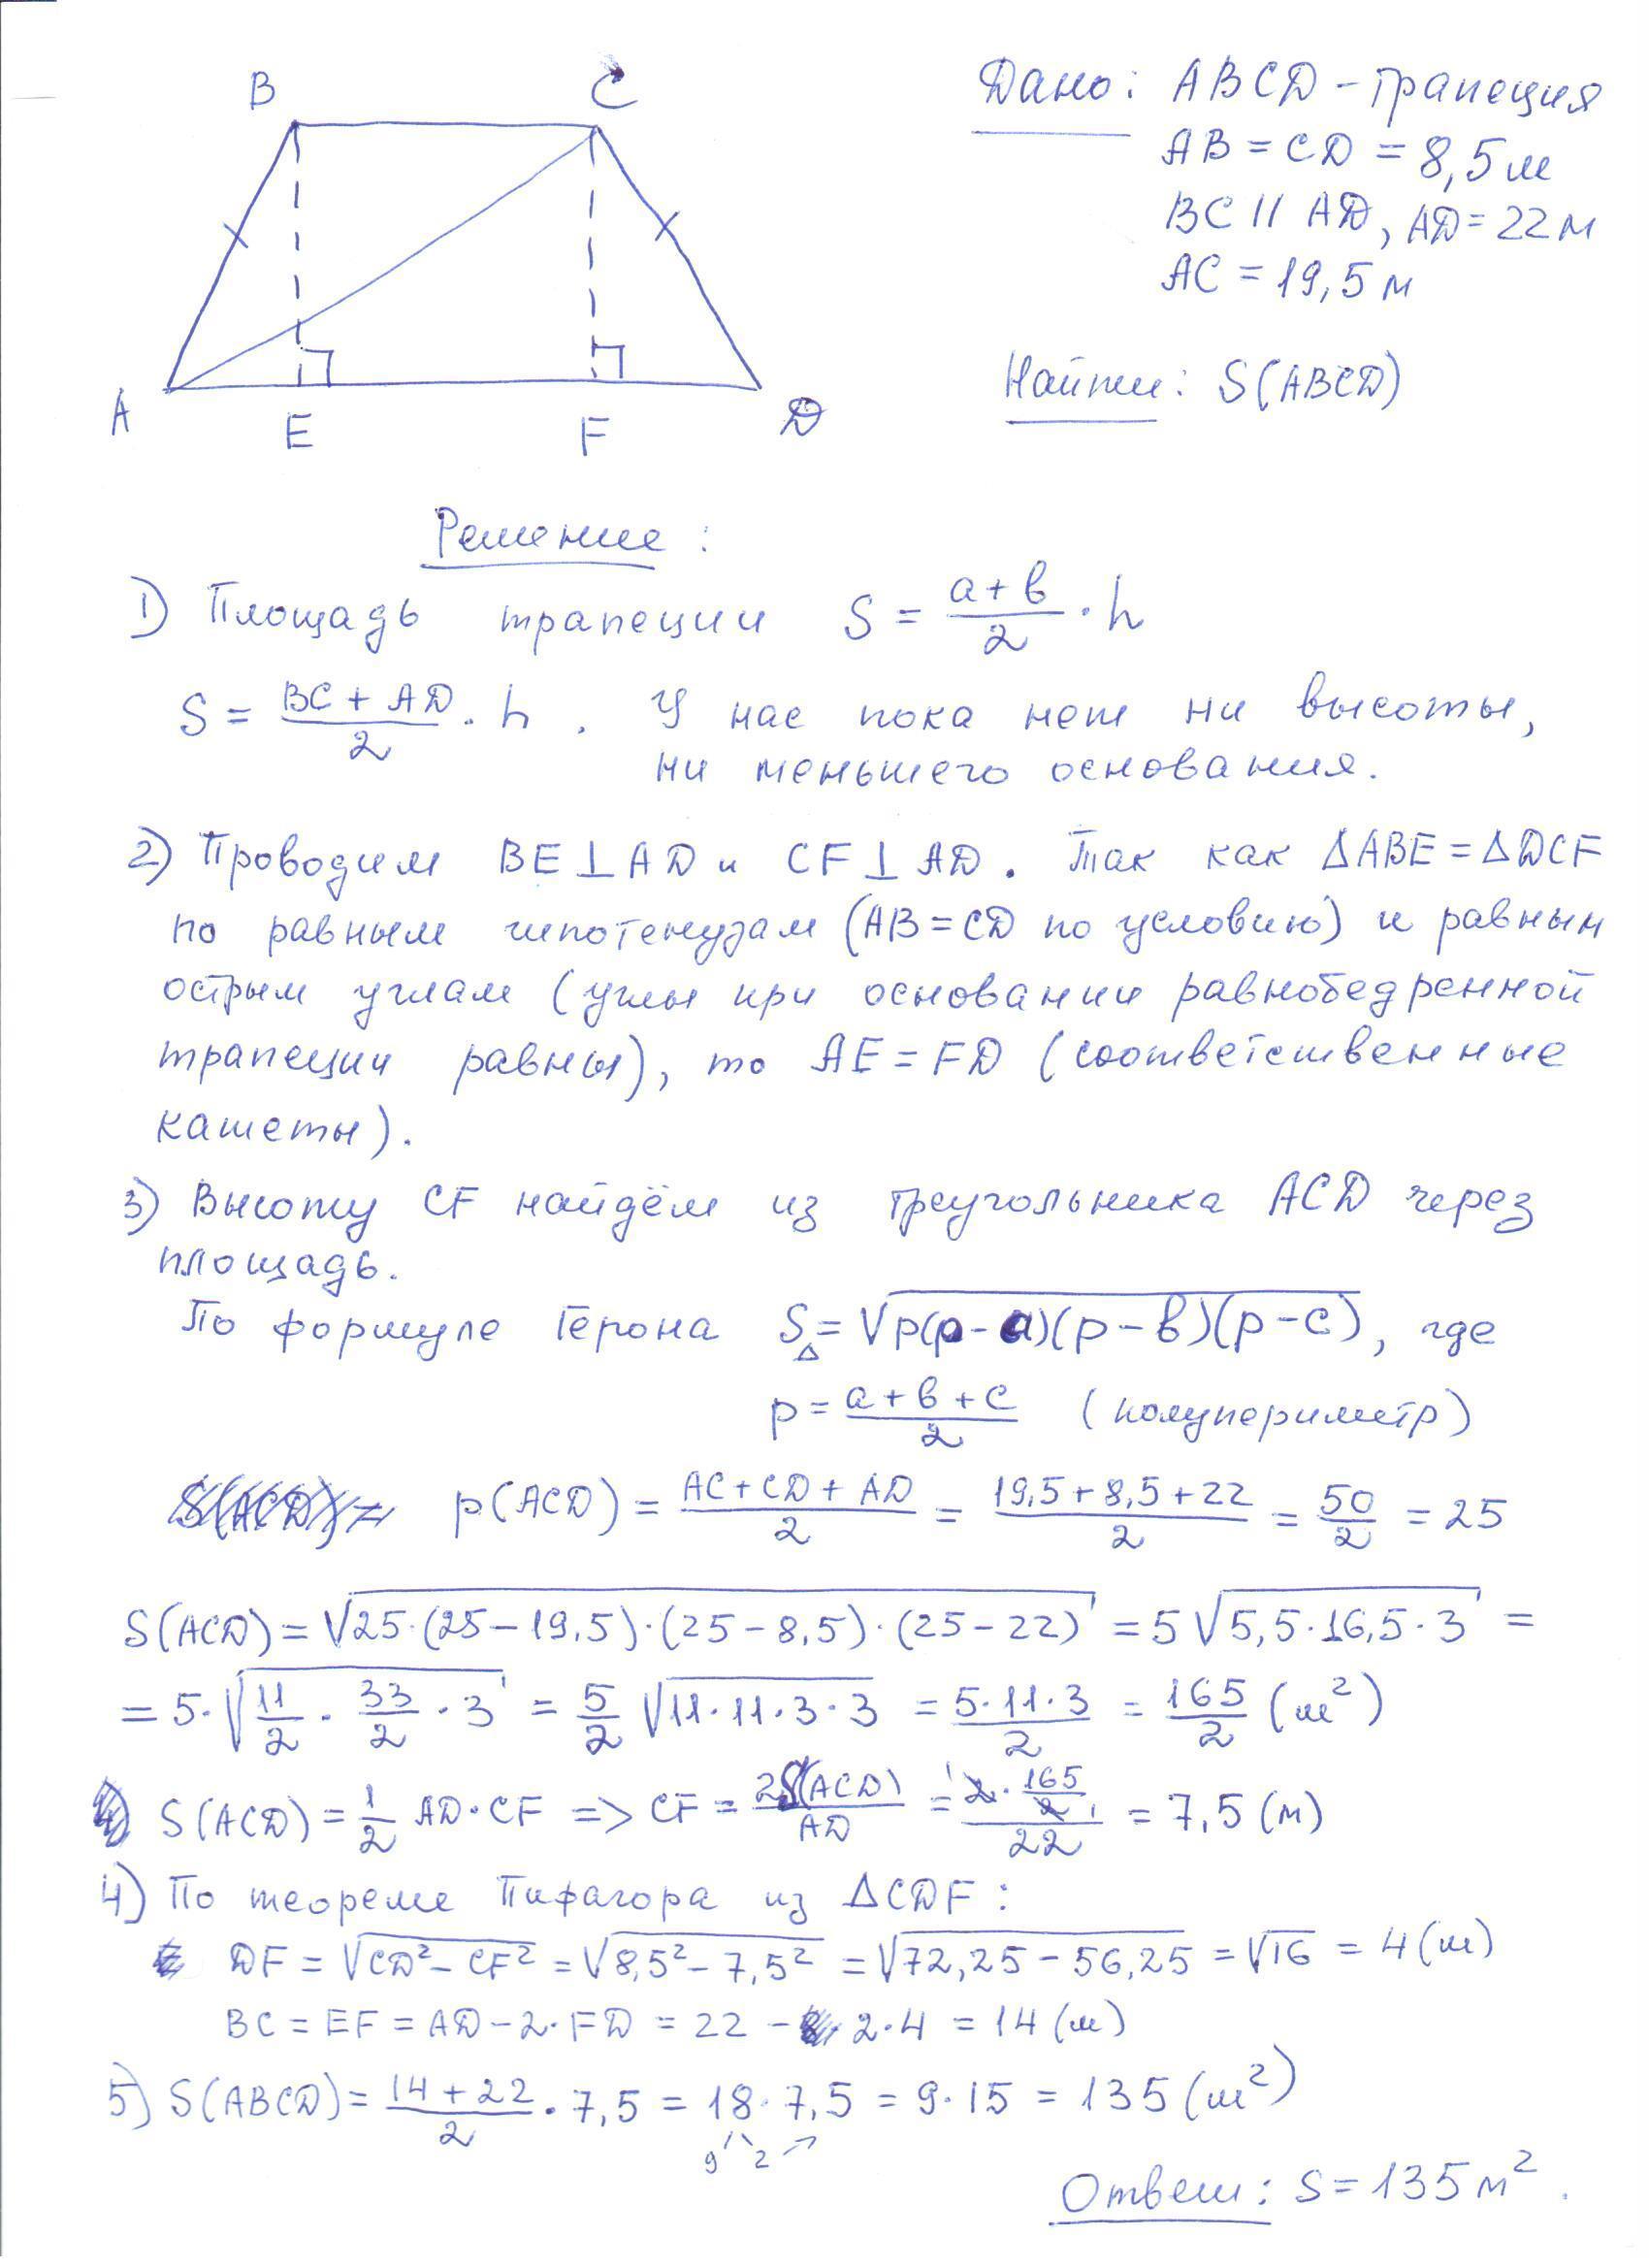 B C
A E F D
Дано: ABCD - трапеция
AB = CD = 8,5 м
BC || AD, AD = 22 м
AC = 19,5 м
Найти: S(ABCD)
Решение:
1) Площадь трапеции S = (a+b)/2 · h
S = (BC + AD)/2 · h. У нас пока нет ни высоты,
ни меньшего основания.
2) Проводим BE⊥AD и CF⊥AD. Так как ΔABE = ΔDCF
по равным гипотенузам (AB = CD по условию) и равным
острым углам (углы при основании равнобедренной
трапеции равны), то AE = FD (соответственные
катеты).
3) Высоту CF найдём из треугольника ACD через
площадь.
По формуле Герона S△ = √(p(p-a)(p-b)(p-c)), где
p = (a+b+c)/2 (полупериметр)
S(ACD) = p(ACD) = (AC+CD+AD)/2 = (19,5+8,5+22)/2 = 50/2 = 25
S(ACD) = √(25·(25-19,5)·(25-8,5)·(25-22)) = 5√(5,5·16,5·3) =
= 5·√(11/2 · 33/2 · 3) = 5/2 √(11·11·3·3) = (5·11·3)/2 = 165/2 (м²)
4) S(ACD) = 1/2 AD·CF => CF = 2S(ACD)/AD = (2·165/2)/22 = 7,5 (м)
4) По теореме Пифагора из ΔCDF:
DF = √(CD²-CF²) = √(8,5²-7,5²) = √(72,25-56,25) = √16 = 4 (м)
BC = EF = AD-2·FD = 22 - 2·4 = 14 (м)
5) S(ABCD) = (14+22)/2 · 7,5 = 18·7,5 = 9·15 = 135 (м²)
9 2
Ответ: S = 135 м².